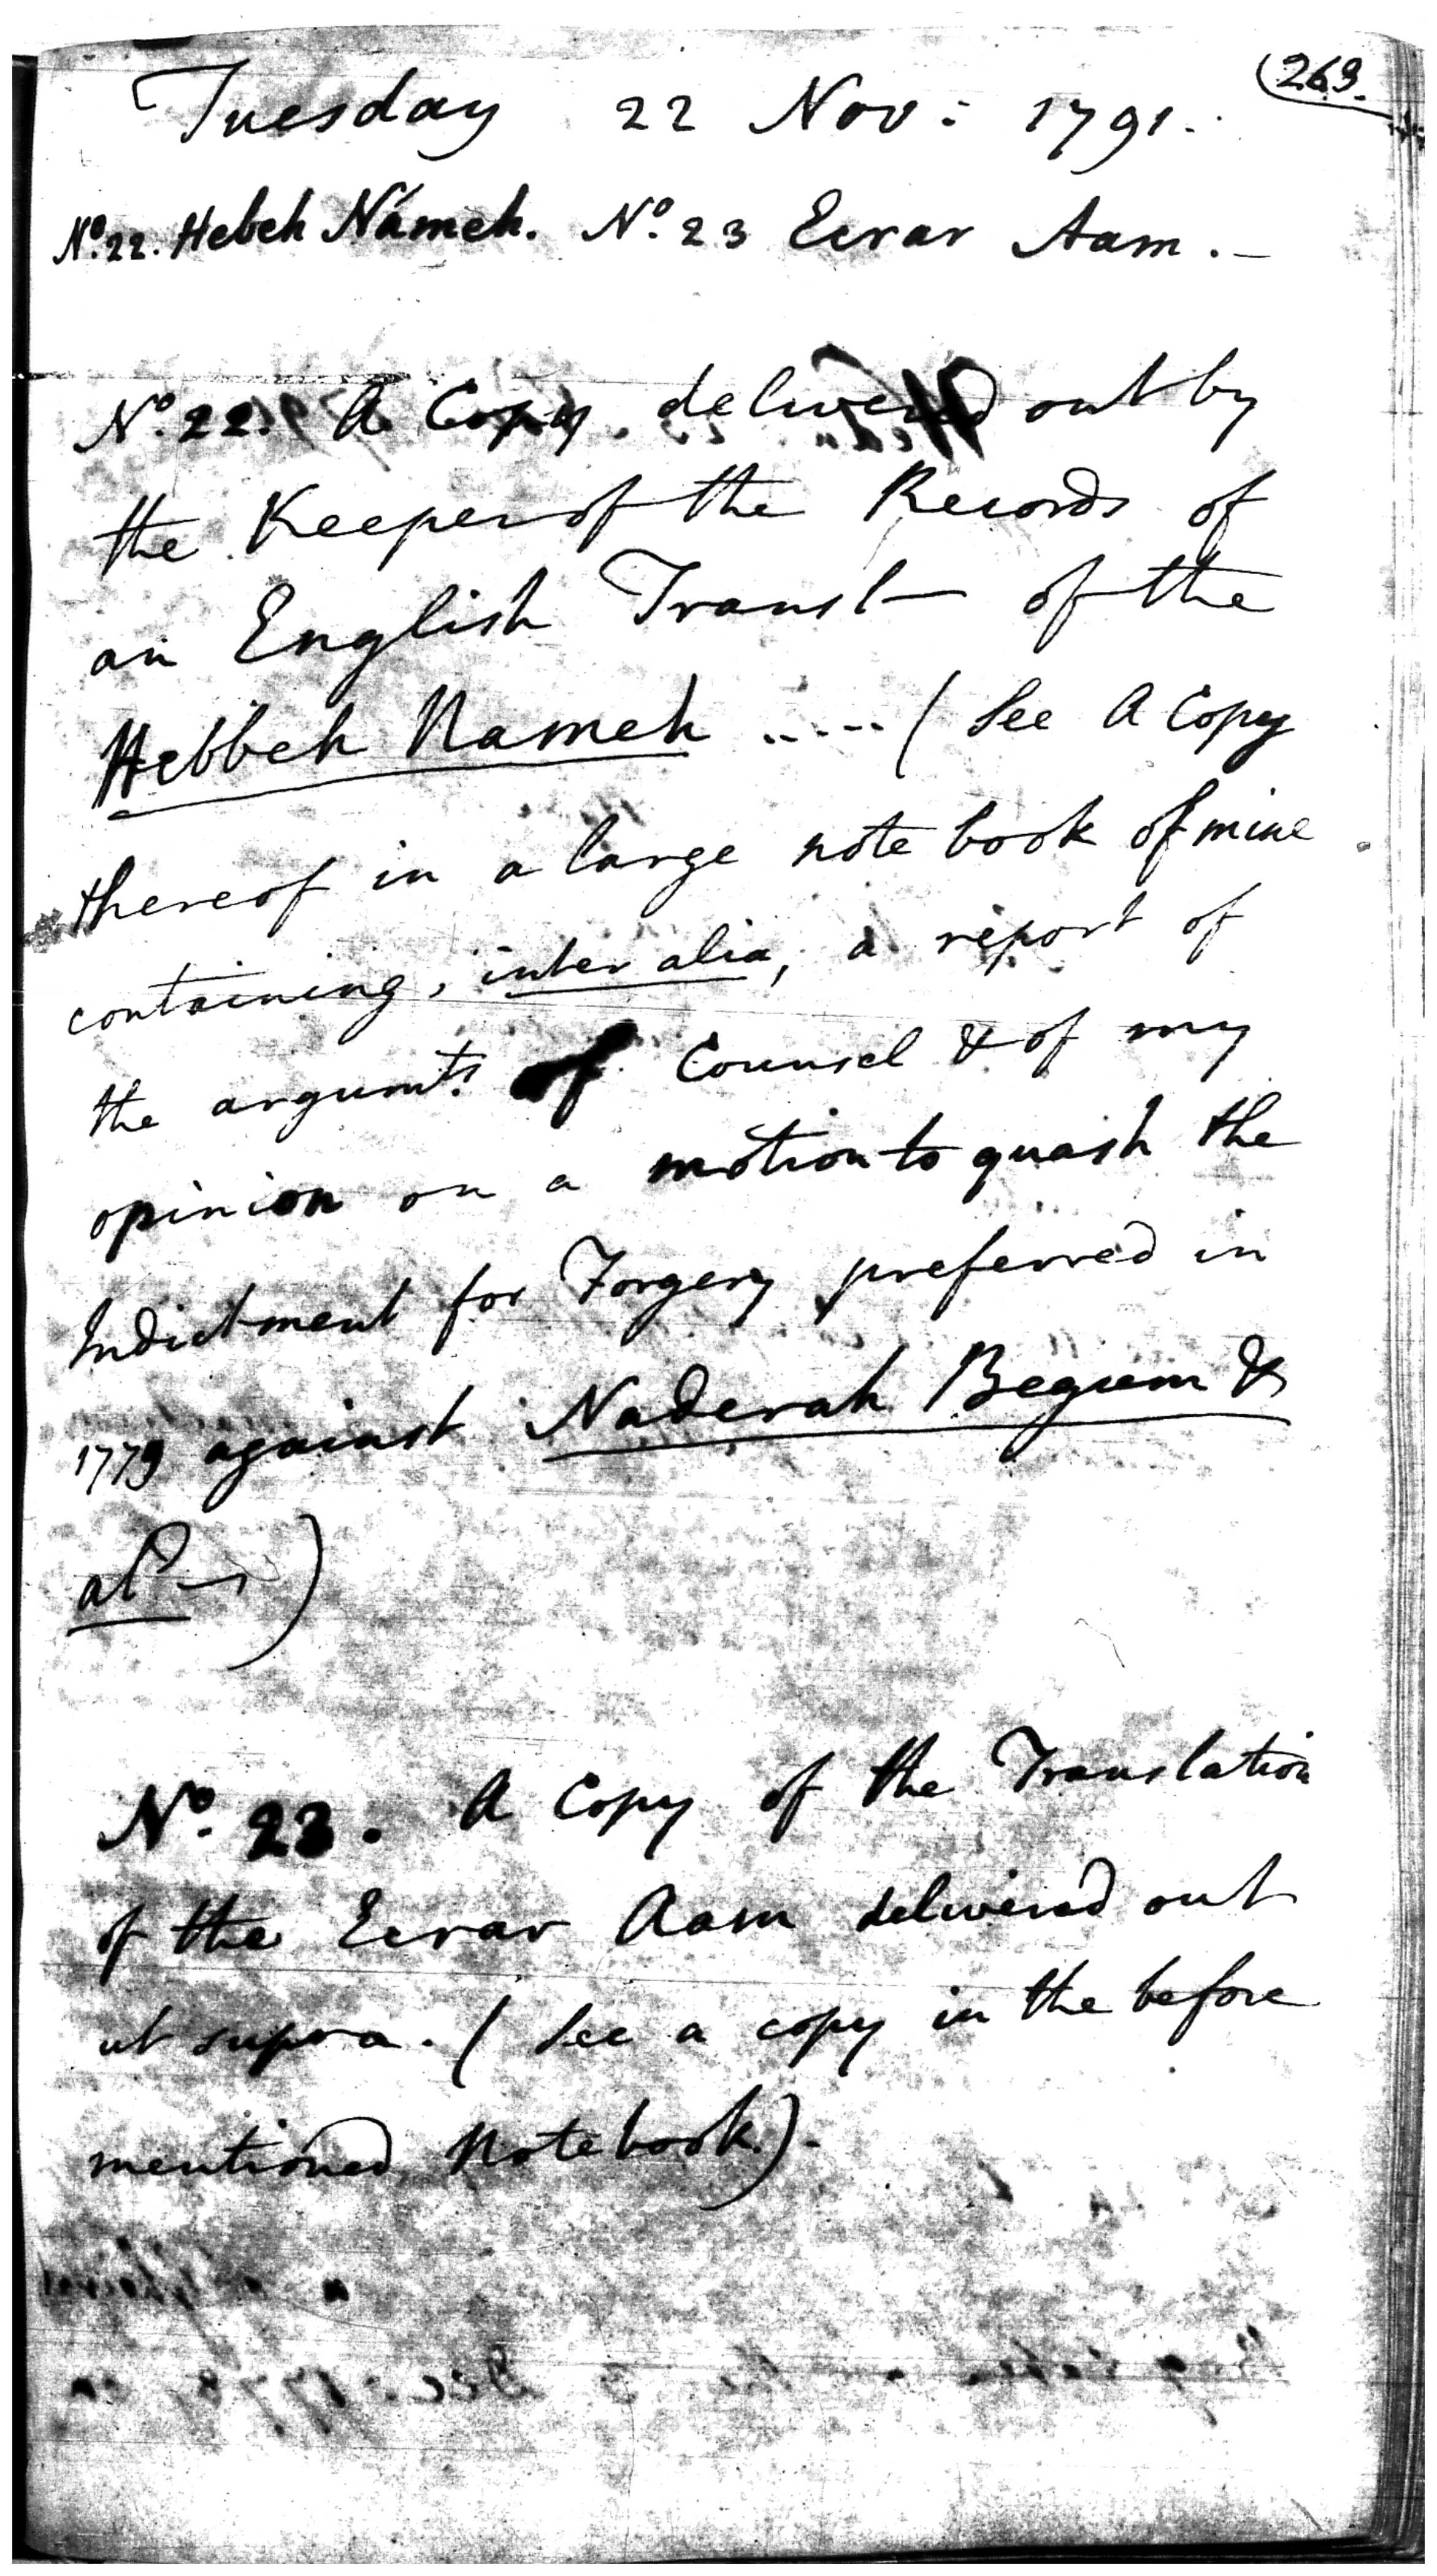 269.
Tuesday 22 Nov: 1791.
No. 22. Hebeh Námeh. No. 23 Ecrar Aam. -
No. 22. A Copy delivered out by
the Keeper of the Records of
an English Transl— of the
Hebbeh Nameh ..... ( See A Copy
thereof in a large note book of mine
containing, inter alia, a report of
the argumts. of Counsel & of my
opinion on a motion to quash the
Indictment for Forgery preferred in
1779 against Naderah Begum &
al )
No. 23. A Copy of the Translation
of the Ecrar Aam delivered out
ut supra. ( See a copy in the before
mentioned Notebook.).